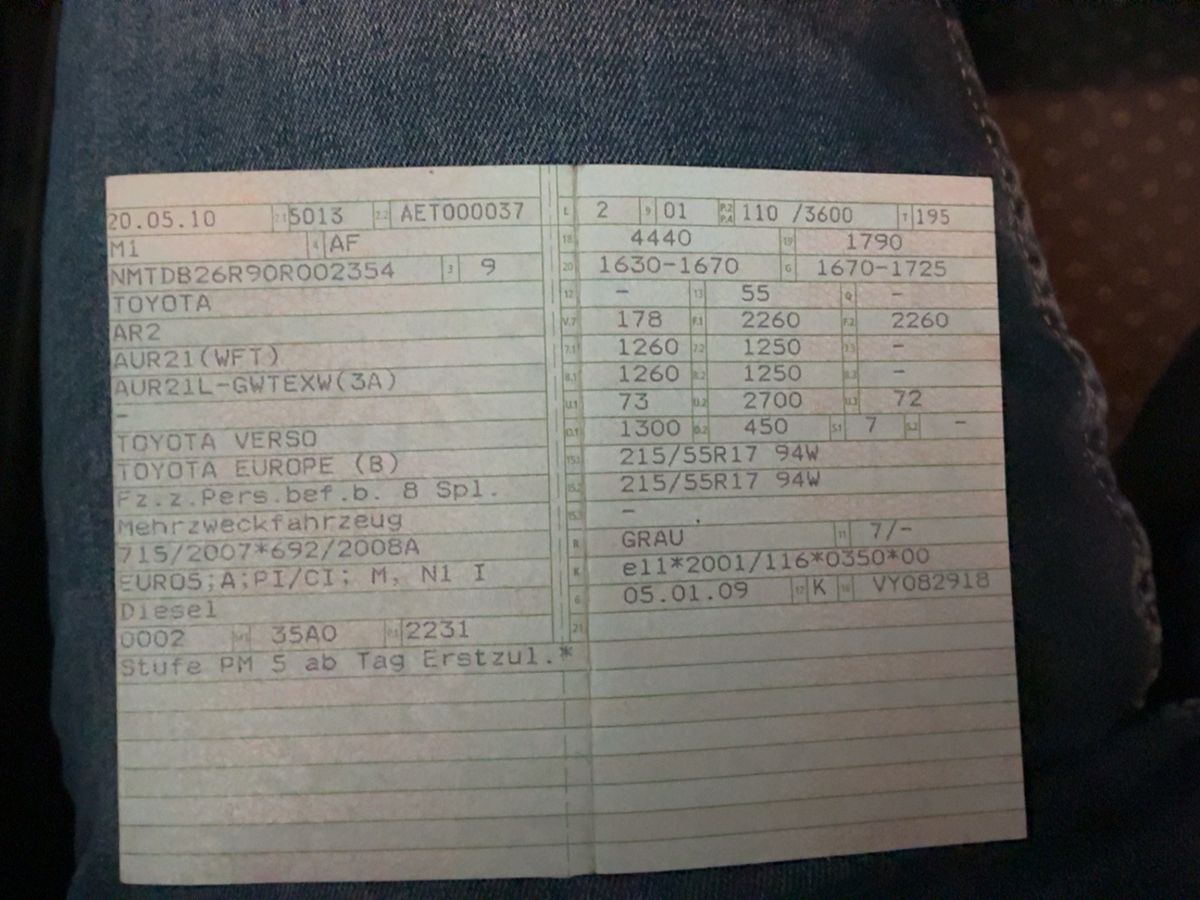 20.05.10 2.1 5013 2.2 AET000037
M1 4 AF
NMTDB26R90R002354 3 9
TOYOTA
AR2
AUR21(WFT)
AUR21L-GWTEXW(3A)
-
TOYOTA VERSO
TOYOTA EUROPE (B)
Fz.z.Pers.bef.b. 8 Spl.
Mehrzweckfahrzeug
715/2007*692/2008A
EURO5;A;PI/CI; M, N1 I
Diesel
0002 35A0 2231
Stufe PM 5 ab Tag Erstzul.*
L 2 9 01 P.2 P.4 110 /3600 T 195
18 4440 19 1790
20 1630-1670 G 1670-1725
12 - 13 55 Q -
V.7 178 F.1 2260 F.2 2260
7.1 1260 7.2 1250 7.3 -
8.1 1260 8.2 1250 8.3 -
U.1 73 U.2 2700 U.3 72
O.1 1300 O.2 450 S.1 7 S.2 -
15.1 215/55R17 94W
15.2 215/55R17 94W
15.3 -
R GRAU 11 7/-
K e11*2001/116*0350*00
6 05.01.09 17 K 16 VY082918
21